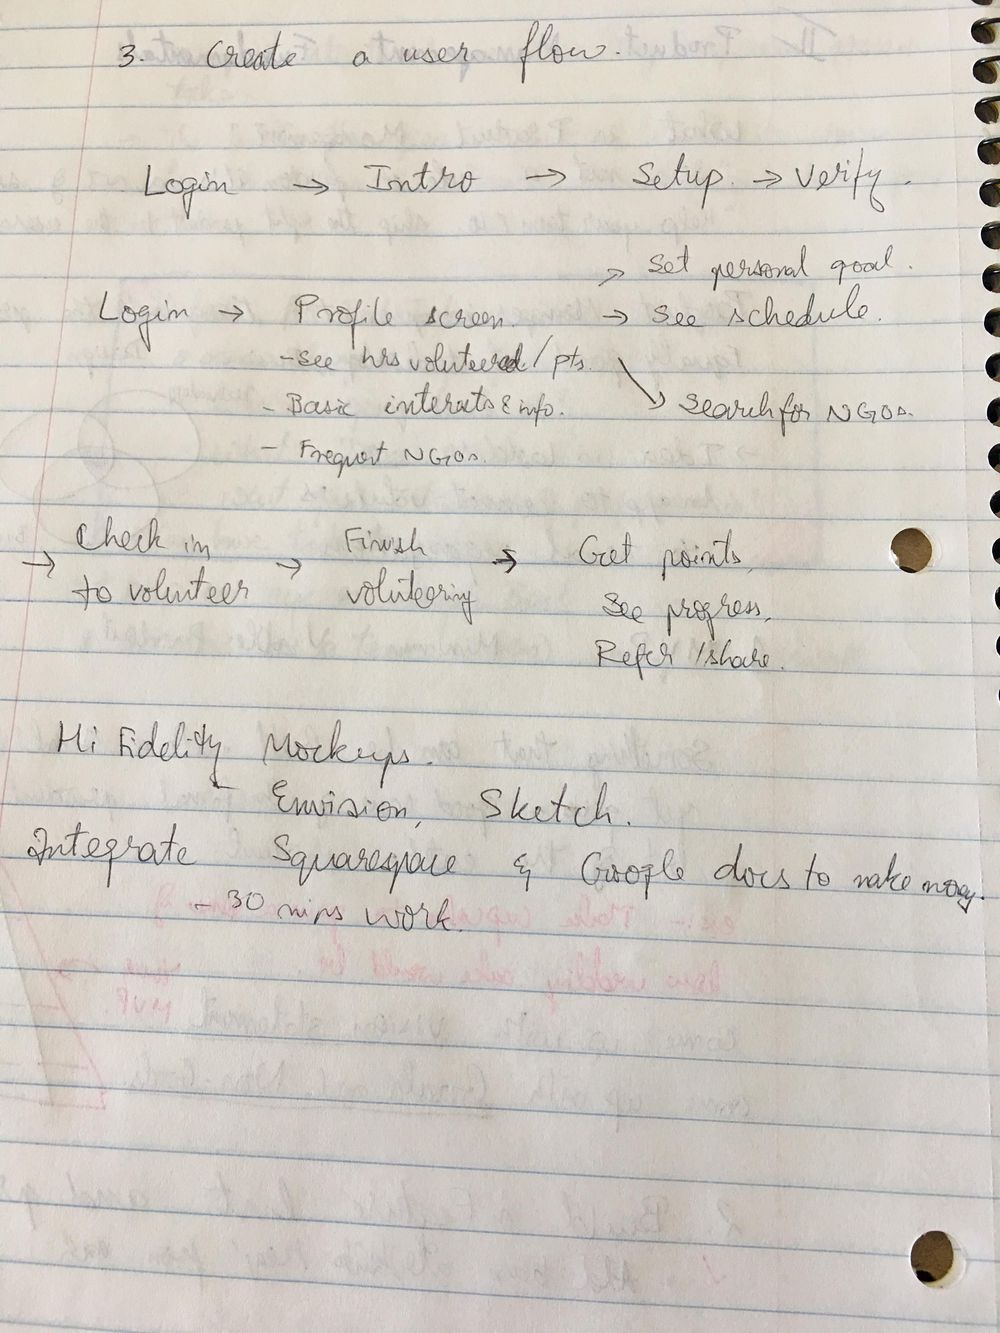 3. Create a user flow.
Login → Intro → Setup. → Verify.
→ Set personal goal.
Login → Profile screen. → See schedule.
- See hrs voluteered / pts.
→ Search for NGOs.
- Basic interests & info.
- Frequent NGOs.
→ Check in to volunteer → Finish volunteering → Get points,
See progress,
Refer / share.
Hi Fidelity Mockups.
- Envision, Sketch.
Integrate Squarespace & Google docs to make
- 30 mins work.